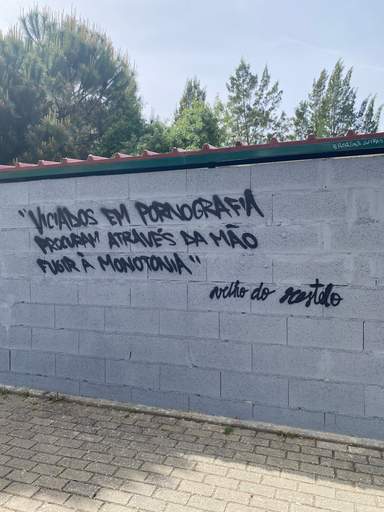 "VICIADOS EM PORNOGRAFIA
PROCURAM ATRAVÉS DA MÃO
FUGIR À MONOTONIA"
velho do restelo